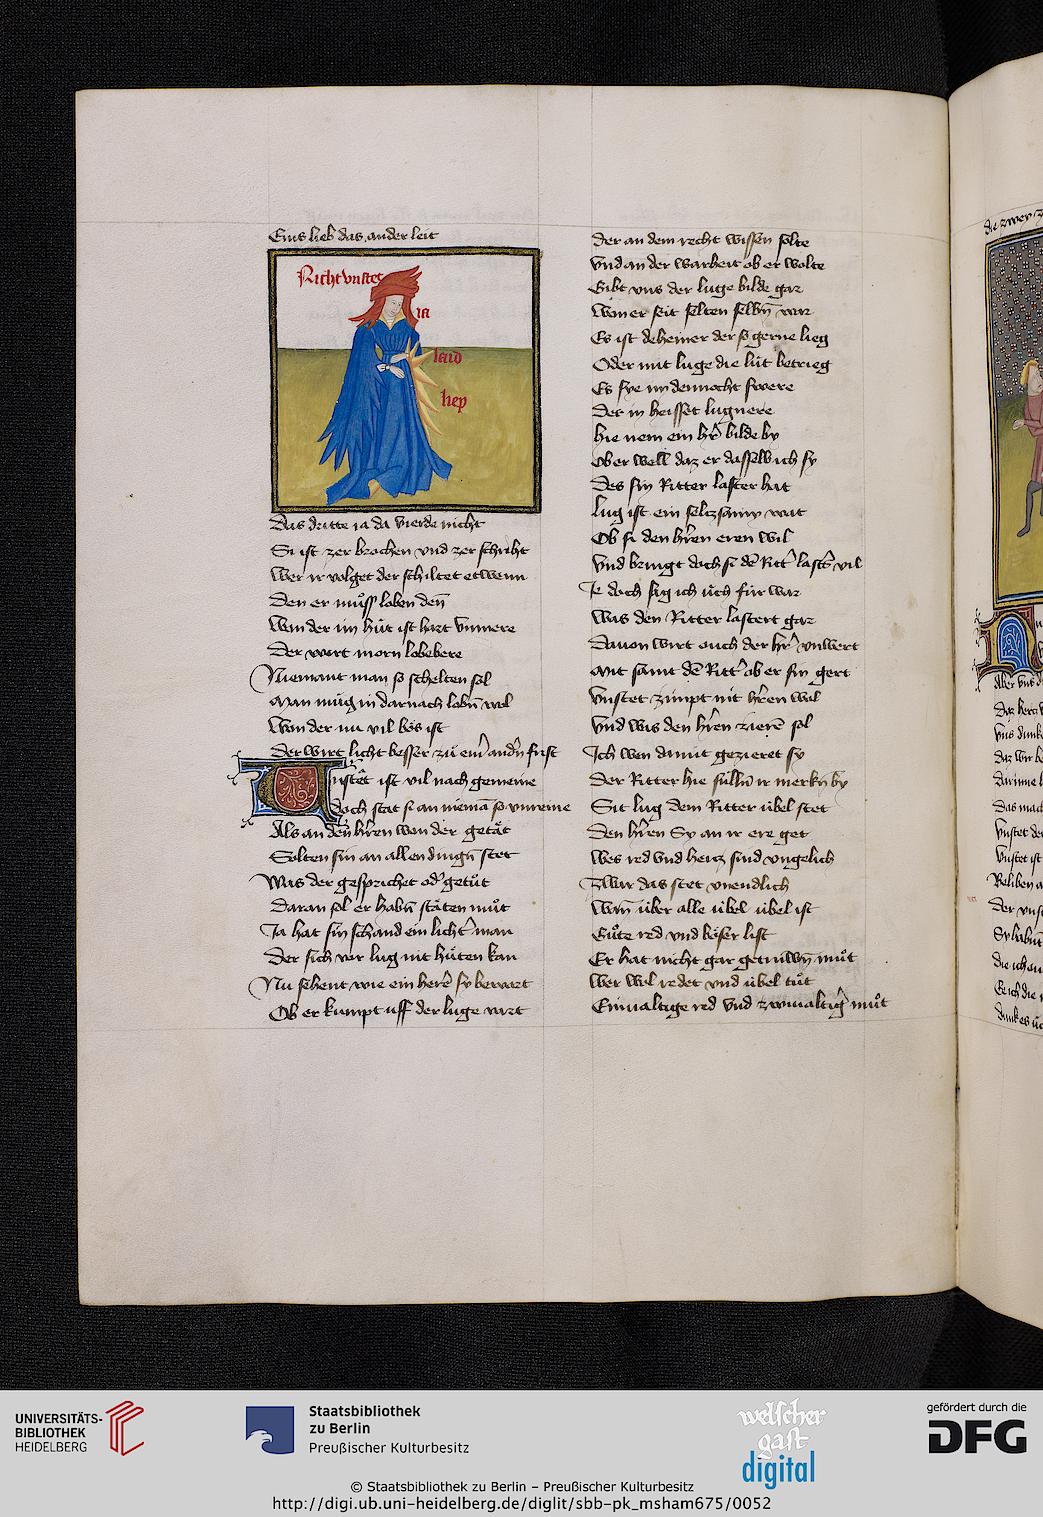 Eins lieb das ander leit
Nicht vnstet
ia
laid
liep
Das dritte ia da vierde nicht
Si ist zer brochen vnd zer schriht
Wer ir volget der schiltet etwenn
Den er muͦss loben den̄
Wan der im huͤt ist hart vnmere
Der wirt morn lobebere
Niemant man so schelten sol
Man mug in darnach lobn̄ wol
Wan der nu vil boͤs ist
Der wirt licht besser zu eim̄ andn̄ frist
Unstet ist vil nach gemeine
doch stat si an nieman̄ so vnreine
Als an den̄ hr̄ren wan der getaͤt
Solten sin an allen dingn̄ stet
Was der gesprichet od' getuͦt
Daran sol er habn̄ staͤten muͦt
Ja hat sin schand ein licht' man
Der sich vor lug nit huͤten kan
Nu sehent wie ein here sy bewart
Ob er kumpt uff der luge vart
Der an dem recht wissen solte
Vnd an der warheit ob er wolte
Gibt vns der luge bilde gar
Wan er seit selten selbn̄ war
Es ist deheiner der so gerne lieg
Oder mit luge die luͤt betrieg
Es sye im dennocht swere
Der in heisset lugnere
Hie nem ein hr̄ bilde by
Ob er well daz er dasselb ich sy
Des sin Ritter laster hat
Lug ist ein seltzsamy wat
Ob si den hr̄ren eren wil
Vnd bringt doch si de Ritt' last's vil
Je doch sag ich uͤch fuͤr war
Was den Ritter lastert gar
Dauon wirt ouch der hr̄ vnwert
Mit samt de Ritt' ob er sin gert
Vnstet zimpt nit hr̄ren wol
Vnd wis den hr̄ren ziere sol
Ich wen damit gezieret sy
Der Ritter hie suͤlln̄ ir merkn̄ by
Sit lug dem Ritter uͤbel stet
Den hr̄ren Sy an ir ere get
Wes red vnd hertz sind vngelich
Zwar das stet vnendlich
Wan̄ uͤber alle uͤbel uͤbel ist
Guͦte red vnd boͤser list
Er hat nicht gar getruwn̄ muͦt
Wer wol redet vnd uͤbel tuͦt
Einualtige red vnd zwiualtig' muͦt
UNIVERSITÄTS-
BIBLIOTHEK
HEIDELBERG
Staatsbibliothek
zu Berlin
Preußischer Kulturbesitz
welscher
gast
digital
gefördert durch die
DFG
© Staatsbibliothek zu Berlin – Preußischer Kulturbesitz
http://digi.ub.uni-heidelberg.de/diglit/sbb-pk_msham675/0052